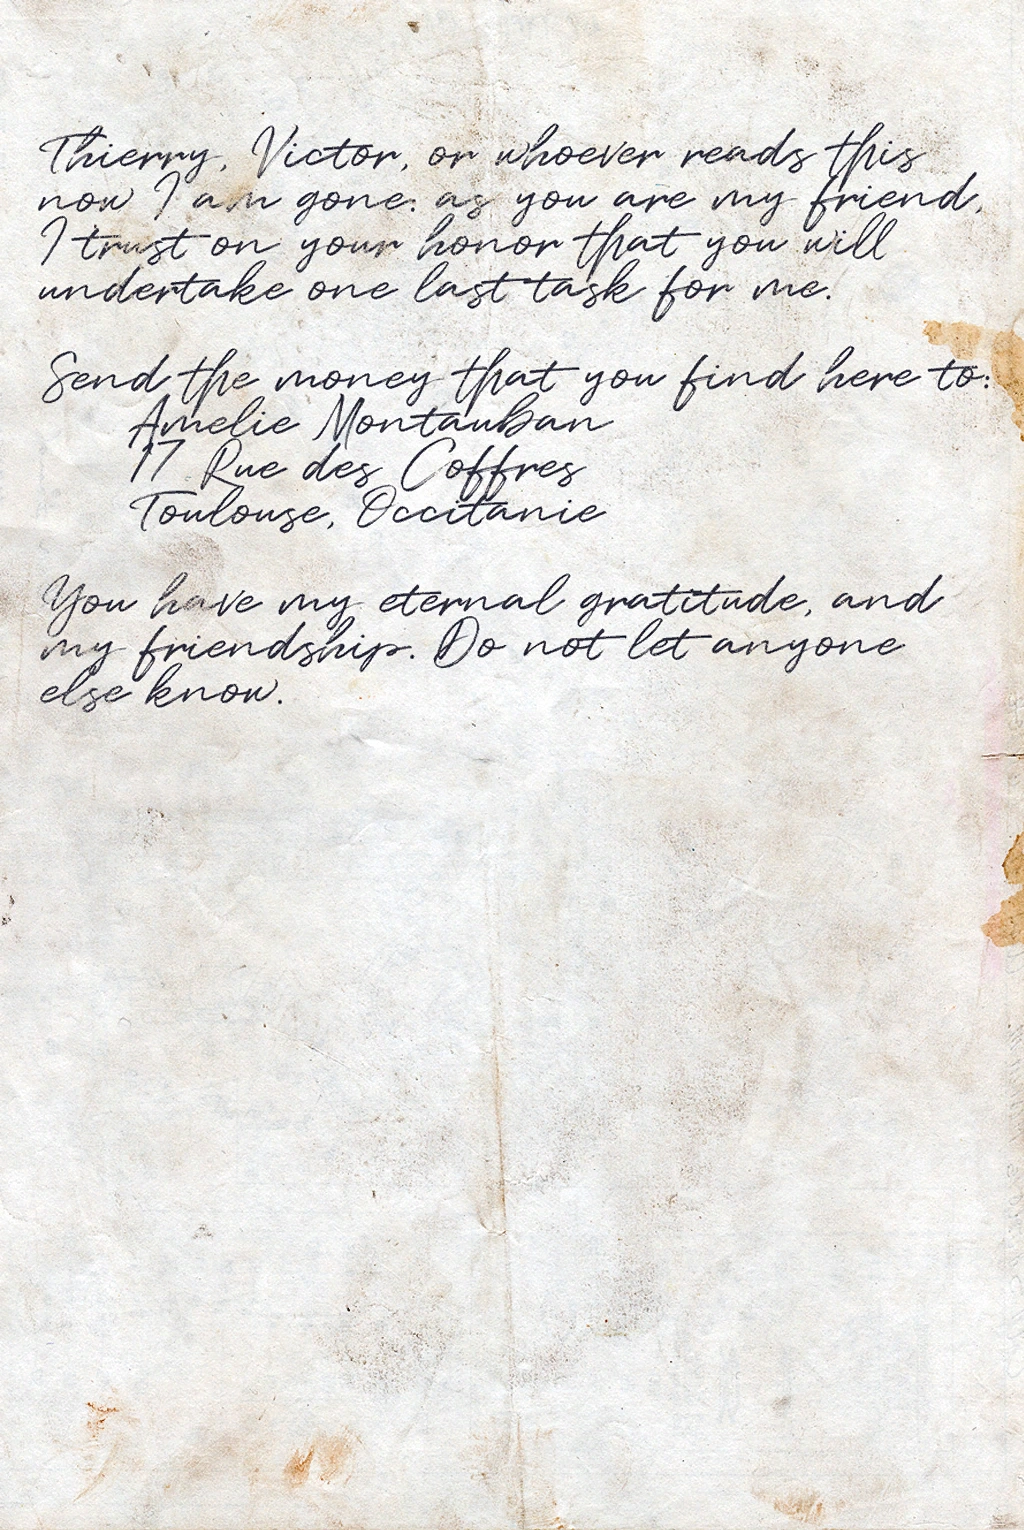 Thierry, Victor, or whoever reads this
now I am gone: as you are my friend,
I trust on your honor that you will
undertake one last task for me.
Send the money that you find here to:
Amelie Montauban
17 Rue des Coffres
Toulouse, Occitanie
You have my eternal gratitude, and
my friendship. Do not let anyone
else know.